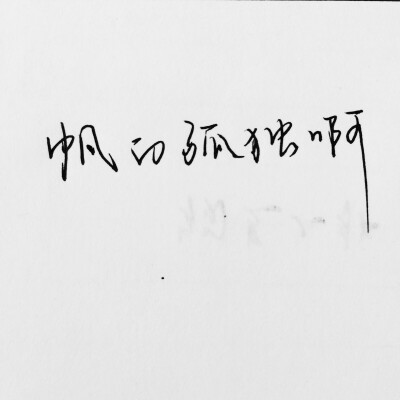 帆的孤独啊